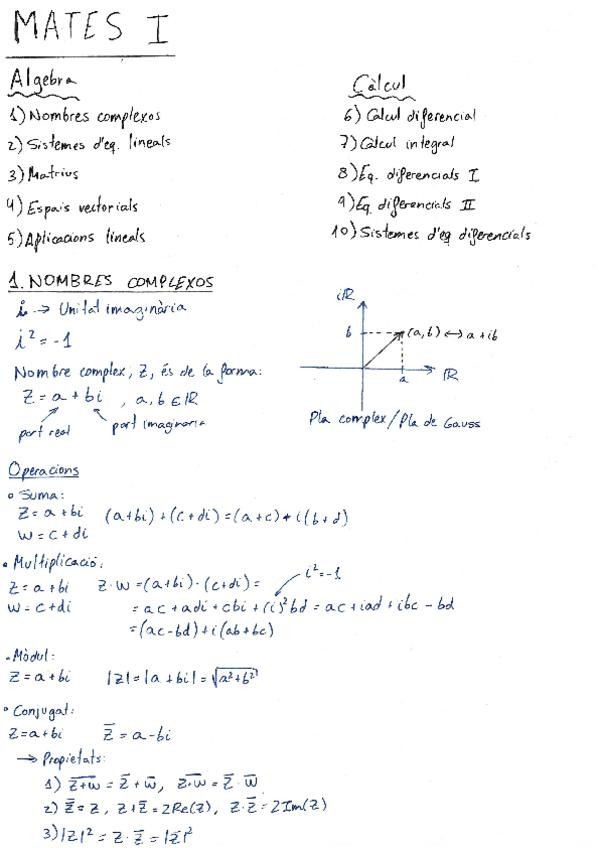 MATES I
Algebra
1) Nombres complexos
2) Sistemes d'eq. lineals
3) Matrius
4) Espais vectorials
5) Aplicacions lineals
Càlcul
6) Calcul diferencial
7) Càlcul integral
8) Eq. diferencials I
9) Eq. diferencials II
10) Sistemes d'eq diferencials
1. NOMBRES COMPLEXOS
i → Unitat imaginària
i² = -1
Nombre complex, Z, és de la forma:
Z = a + bi , a, b ∈ ℝ
part real
part imaginaria
iℝ
b
(a,b) ↔ a + ib
a
ℝ
Pla complex/Pla de Gauss
Operacions
• Suma:
Z = a + bi (a+bi) + (c+di) = (a+c) + i(b+d)
w = c + di
• Multiplicació:
Z = a + bi Z·w = (a+bi)·(c+di) =
i² = -1
w = c + di = ac + adi + cbi + (i)²bd = ac + iad + ibc - bd
= (ac-bd) + i(ab+bc)
• Mòdul:
Z = a + bi |Z| = |a + bi| = √a²+b²
• Conjugat:
Z = a + bi Z̅ = a - bi
→ Propietats:
1) Z̅+̅w̅ = Z̅ + w̅, Z̅·̅w̅ = Z̅·w̅
2) Z̿ = Z, Z + Z̅ = 2Re(Z), Z·Z̅ = 2Im(Z)
3) |Z|² = Z·Z̅ = |Z̅|²